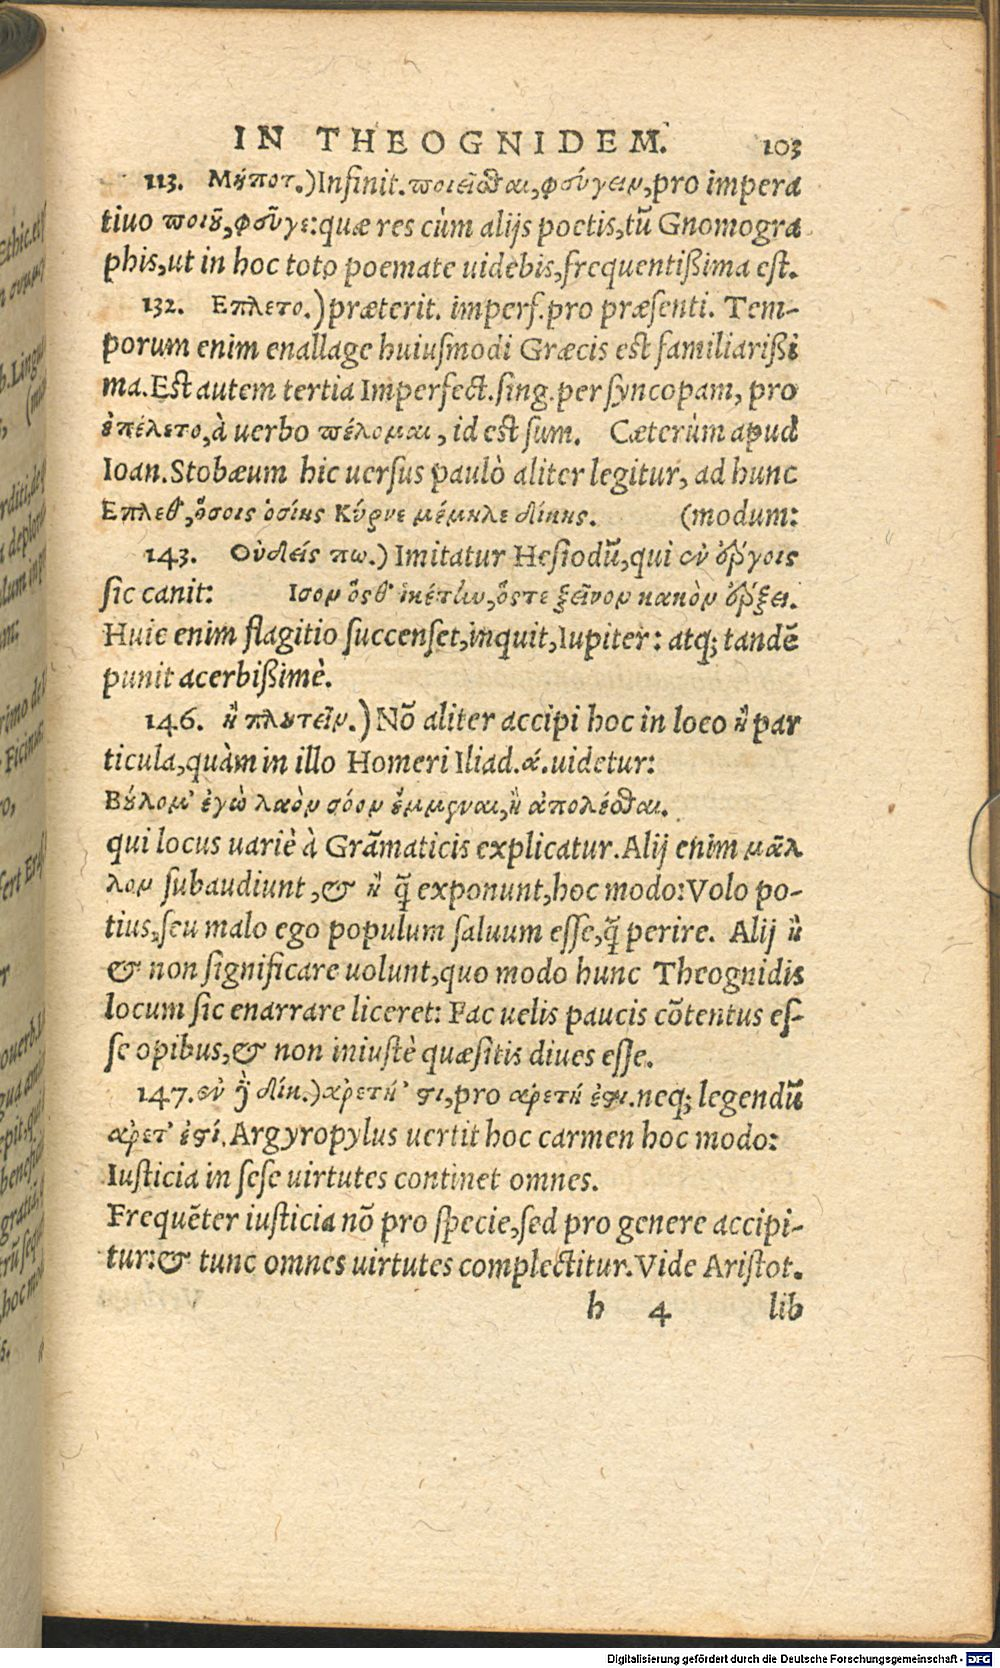 IN THEOGNIDEM. 103
113. Μήποτ.) Infinit. ποιεῖσθαι, φεύγειν, pro impera
tiuo ποιοῦ, φεῦγε: quæ res cùm alijs poetis, tũ Gnomogra
phis, ut in hoc toto poemate uidebis, frequentißima est.
132. Επλετο.) præterit. imperf. pro præsenti. Tem-
porum enim enallage huiusmodi Græcis est familiarißi
ma. Est autem tertia Imperfect. sing. per syncopam, pro
ἐπέλετο, à uerbo πέλομαι, id est sum. Cæterùm apud
Ioan. Stobæum hic uersus paulò aliter legitur, ad hunc
Επλεθ', ὅσοις ὁσίης Κύρνε μέμηλε δίκης. (modum:
143. Οὐδείς πω.) Imitatur Hesiodũ, qui ἐν ἔργοις
sic canit: Ισον ὅς θ' ἱκέτην, ὅςτε ξεῖνον κακὸν ἔρξει.
Huic enim flagitio succenset, inquit, Iupiter: atq; tandẽ
punit acerbißimè.
146. ἢ πλουτεῖν.) Nõ aliter accipi hoc in loco ἢ par
ticula, quàm in illo Homeri Iliad. ά. uidetur:
Βούλομ' ἐγὼ λαὸν σόον ἔμμεναι, ἢ ἀπολέσθαι.
qui locus uariè à Grãmaticis explicatur. Alij enim μᾶλ
λον subaudiunt, & ἢ q̃ exponunt, hoc modo: Volo po-
tius, seu malo ego populum saluum esse, q̃ perire. Alij ἢ
& non significare uolunt, quo modo hunc Theognidis
locum sic enarrare liceret: Fac uelis paucis cõtentus es-
se opibus, & non iniustè quæsitis diues esse.
147. ἐν δὲ δίκ.) ἀρετή 'στι, pro ἀρετή ἐστι. neq; legendũ
ἀρετ' ἐστί. Argyropylus uertit hoc carmen hoc modo:
Iusticia in sese uirtutes continet omnes.
Frequẽter iusticia nõ pro specie, sed pro genere accipi-
tur: & tunc omnes uirtutes complectitur. Vide Aristot.
h 4 lib
Digitalisierung gefördert durch die Deutsche Forschungsgemeinschaft - DFG